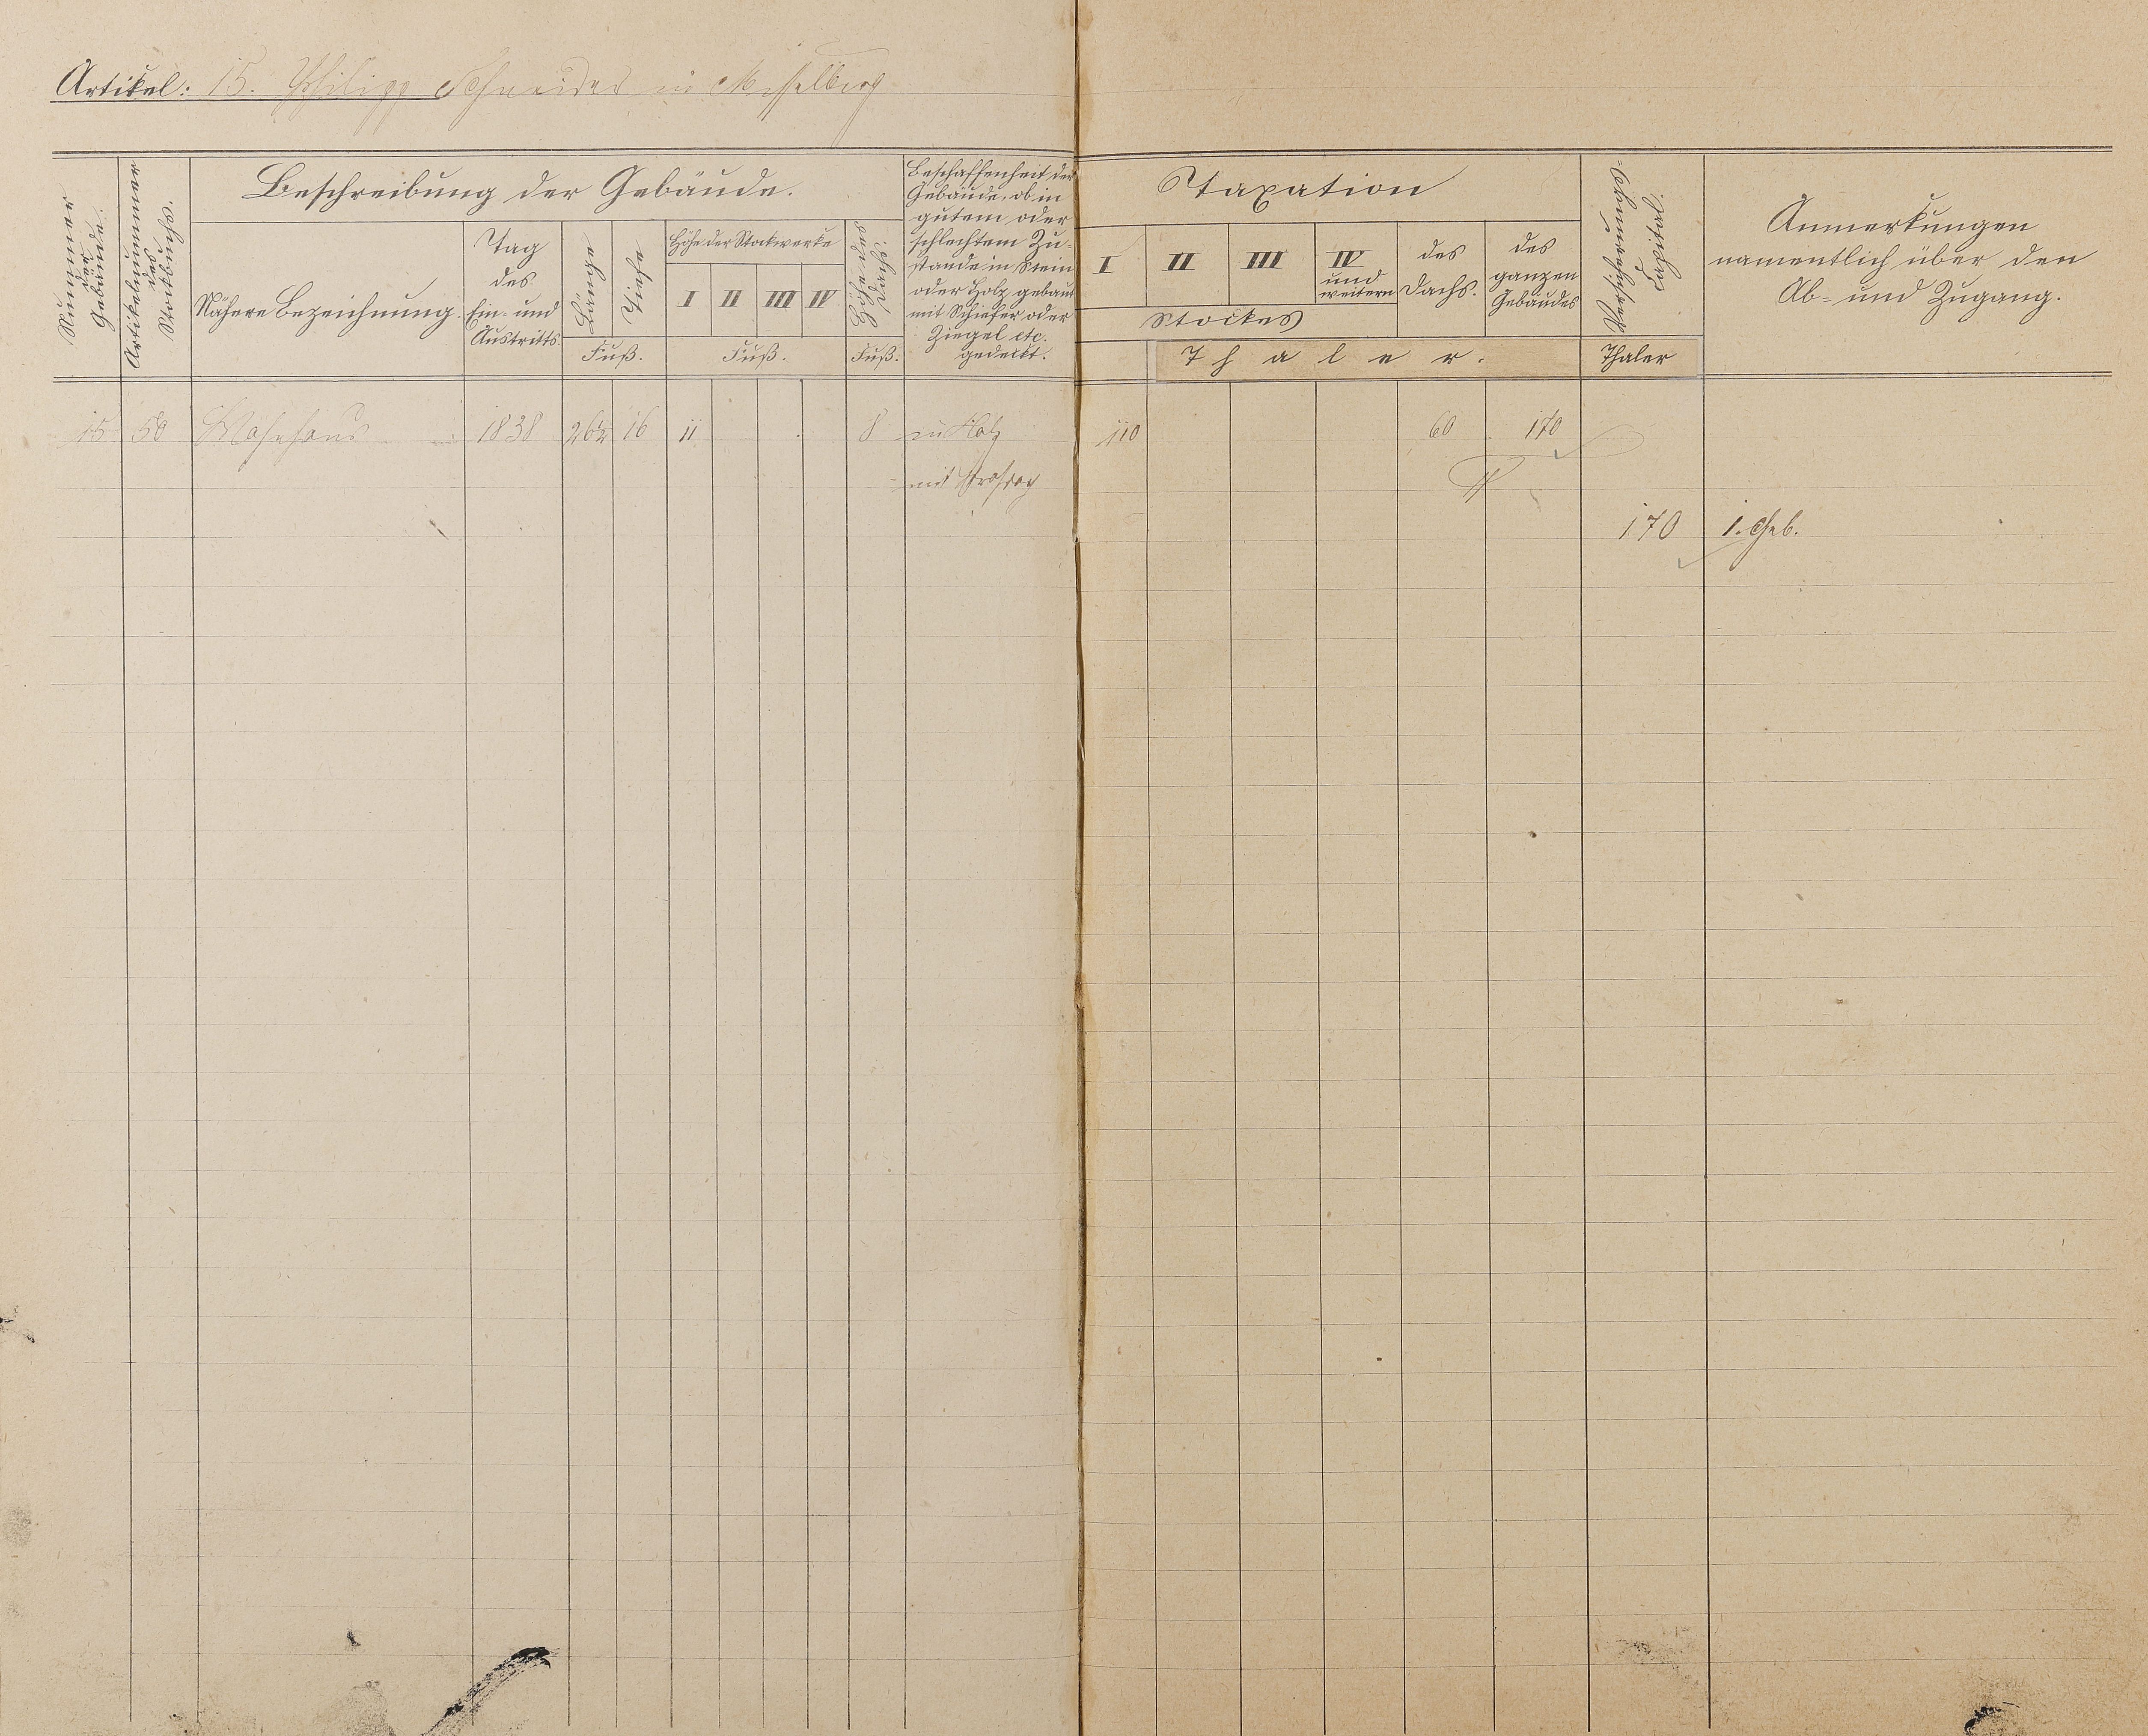 Artikel: 15. Philipp Schneider in Misselberg
Nummer der Gebäude.
Artikelnummer des Stockbuchs.
Beschreibung der Gebäude.
Nähere Bezeichnung.
Tag des Ein- und Austritts.
Länge
Tiefe
Fuß.
Höhe der Stockwerke
I II III IV
Fuß.
Höhe des Dachs.
Fuß.
Beschaffenheit der
Gebäude, ob in
gutem oder
schlechtem Zu-
stande in Stein
oder Holz gebaut
mit Schiefer oder
Ziegel etc.
gedeckt.
Taxation
I II III IV und weitern
Stockes
des Dachs.
des ganzen Gebäudes
Thaler.
Capital.
Thaler
Anmerkungen
namentlich über den
Ab- und Zugang.
15 50 Wohnhaus 1838 26½ 16 11 8 in Holz 110 60 170
mit Strohdach
170 1. Geb.